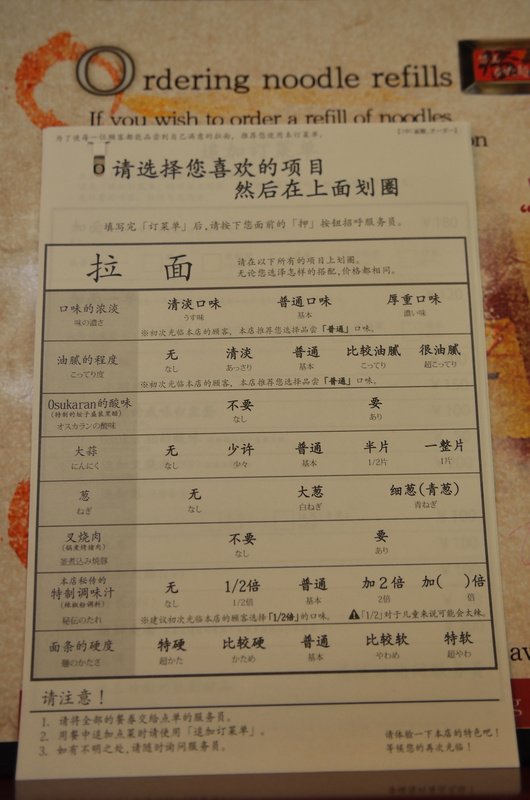 Ordering noodle refills
If you wish to order a refill of noodles
为了使每一位顾客都能品尝到自己满意的拉面，推荐您使用本订菜单。
请选择您喜欢的项目
然后在上面划圈
填写完「订菜单」后，请按下您面前的「押」按钮招呼服务员。
拉 面
请在以下所有的项目上划圈。
无论您选泽怎样的搭配，价格都相同。
口味的浓淡 清淡口味 普通口味 厚重口味
味の濃さ うす味 基本 濃い味
※初次光临本店的顾客，本店推荐您选择品尝「普通」口味。
油腻的程度 无 清淡 普通 比较油腻 很油腻
こってり度 なし あっさり 基本 こってり 超こってり
※初次光临本店的顾客，本店推荐您选择品尝「普通」口味。
Osukaran的酸味 不要 要
(特制的坛子盛装黑醋) なし あり
オスカランの酸味
大蒜 无 少许 普通 半片 一整片
にんにく なし 少々 基本 1/2片 1片
葱 无 大葱 细葱(青葱)
ねぎ なし 白ねぎ 青ねぎ
叉烧肉 不要 要
(锅煮烤猪肉) なし あり
釜煮込み焼豚
本店秘传的
特制调味汁 无 1/2倍 普通 加2倍 加( )倍
(辣椒粉调料) なし 1/2倍 基本 2倍 倍
秘伝のたれ ※建议初次光临本店的顾客选择「1/2倍」的口味。 「1/2」对于儿童来说可能会太辣。
面条的硬度 特硬 比较硬 普通 比较软 特软
麺のかたさ 超かた かため 基本 やわめ 超やわ
请注意！
1. 请将全部的餐券交给点单的服务员。
2. 用餐中追加点菜时请使用「追加订菜单」。
3. 如有不明之处，请随时询问服务员。
请体验一下本店的特色吧！
等候您的再次光临！